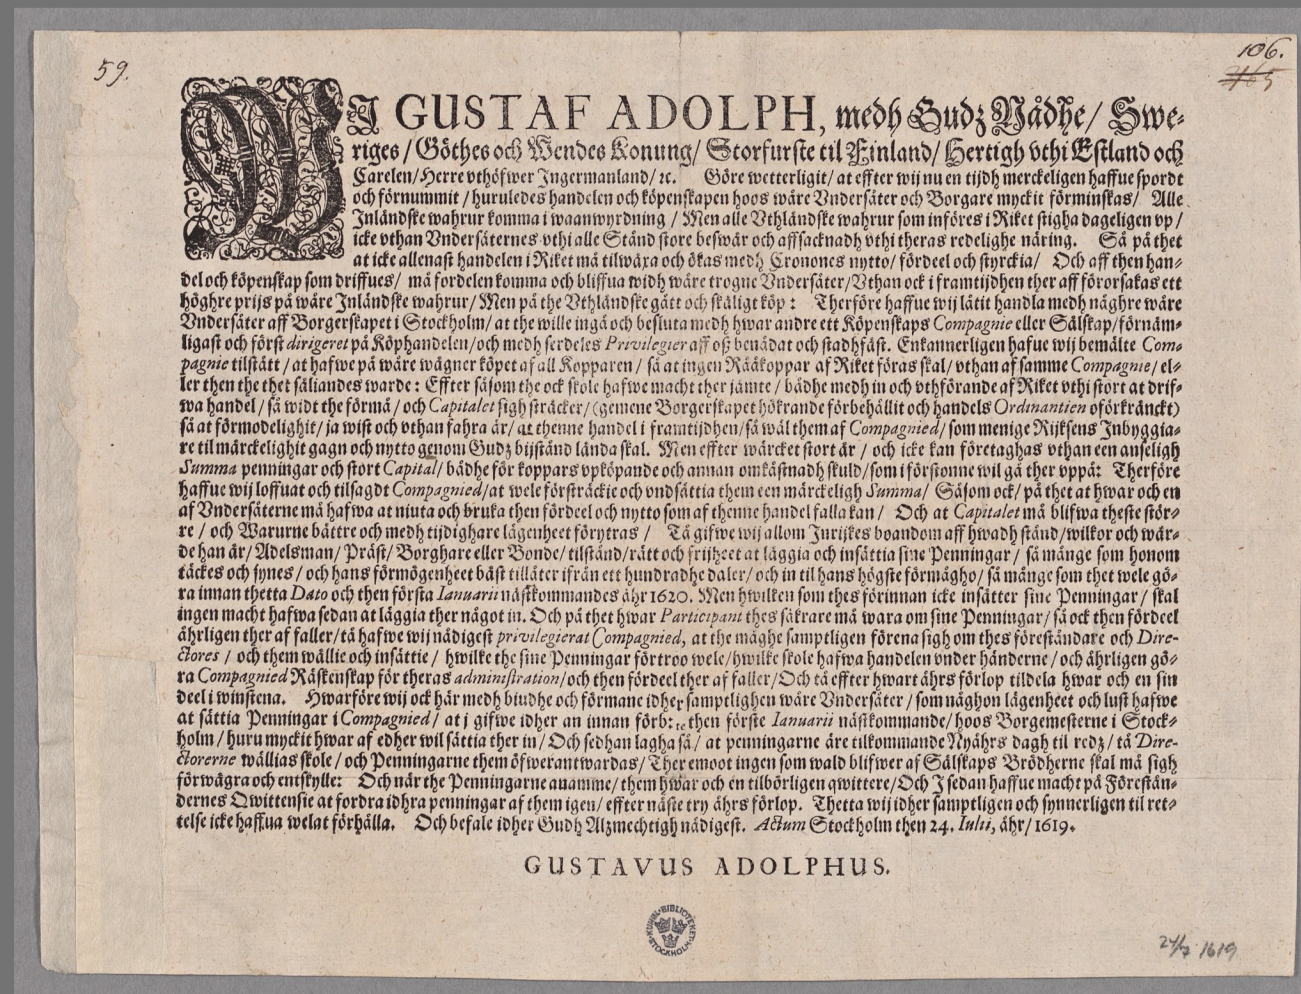 59.
106.
WJ GUSTAF ADOLPH, medh Gudz Nådhe/ Swe-
riges/ Göthes och Wendes Konung/ Storfurste til Finland/ Hertigh vthi Estland och
Carelen/ Herre vthöfwer Ingermanland/ ꝛc. Göre wetterligit/ at effter wij nu en tijdh merckeligen haffue spordt
och förnummit/ huruledes handelen och köpenskapen hoos wåre Vndersåter och Borgare myckit förminskas/ Alle
Inländske wahrur komma i waanwyrdning/ Men alle Vthländske wahrur som införes i Riket stigha dageligen vp/
icke vthan Vndersåternes vthi alle Stånd store beswär och affsacknadh vthi theras redelighe näring. Så på thet
at icke allenast handelen i Riket må tilwära och ökas medh Cronones nytto/ fördeel och styrckia/ Och aff then han-
del och köpenskap som driffues/ må fordelen komma och bliffua widh wåre trogne Vndersåter/ Vthan ock i framtijdhen ther aff förorsakas ett
höghre prijs på wåre Inländske wahrur/ Men på the Vthländske gått och skäligt köp: Therföre haffue wij låtit handla medh någhre wåre
Vndersåter aff Borgerskapet i Stockholm/ at the wille ingå och besluta medh hwar andre ett Köpenskaps Compagnie eller Sälskap/ förnäm-
ligast och först dirigeret på Köphandelen/ och medh serdeles Privilegier aff oß benådat och stadhfäst. Enkannerligen hafue wij bemälte Com-
pagnie tilstått/ at hafwe på wåre wägner köpet af all Kopparen/ så at ingen Rååkoppar af Riket föras skal/ vthan af samme Compagnie/ el-
ler then the thet säliandes warde: Effter såsom the ock skole hafwe macht ther jämte/ bådhe medh in och vthförande af Riket vthi stort at drif-
wa handel/ så widt the förmå/ och Capitalet sigh sträcker/ (gemene Borgerskapet hökrande förbehållit och handels Ordinantien oförkränckt)
så at förmodelighit/ ja wist och vthan fahra är/ at thenne handel i framtijdhen/ så wäl them af Compagnied/ som menige Rijksens Inbyggia-
re til märckelighit gagn och nytto genom Gudz bijstånd lända skal. Men effter wärcket stort är/ och icke kan företaghas vthan een anseligh
Summa penningar och stort Capital/ bådhe för koppars vpköpande och annan omkåstnadh skuld/ som i förstonne wil gå ther vppå: Therföre
haffue wij loffuat och tilsagdt Compagnied/ at wele försträckie och vndsättia them een märckeligh Summa/ Såsom ock/ på thet at hwar och en
af Vndersåterne må hafwa at niuta och bruka then fördeel och nytto som af thenne handel falla kan/ Och at Capitalet må blifwa theste stör-
re/ och Warurne bättre och medh tijdighare lägenheet förytras/ Tå gifwe wij allom Inrijkes boandom aff hwadh stånd/ wilkor och wär-
de han är/ Adelsman/ Präst/ Borghare eller Bonde/ tilstånd/ rätt och frijheet at läggia och insättia sine Penningar/ så månge som honom
täckes och synes/ och hans förmögenheet bäst tillåter ifrån ett hundradhe daler/ och in til hans högste förmågho/ så månge som thet wele gö-
ra innan thetta Dato och then första Ianuarii nästkommandes åhr 1620. Men hwilken som thes förinnan icke insätter sine Penningar/ skal
ingen macht hafwa sedan at läggia ther något in. Och på thet hwar Participant thes säkrare må wara om sine Penningar/ så ock then fördeel
åhrligen ther af faller/ tå hafwe wij nådigest privilegierat Compagnied, at the måghe samptligen förena sigh om thes föreståndare och Dire-
ctores/ och them wällie och insättie/ hwilke the sine Penningar förtroo wele/ hwilke skole hafwa handelen vnder händerne/ och åhrligen gö-
ra Compagnied Räkenskap för theras administration/ och then fördeel ther af faller/ Och tå effter hwart åhrs förlop tildela hwar och en sin
deel i winstena. Hwarföre wij ock här medh biudhe och förmane idher samptlighen wåre Vndersåter/ som någhon lägenheet och lust hafwe
at sättia Penningar i Compagnied/ at j gifwe idher an innan förb:te then förste Ianuarii nästkommande/ hoos Borgemesterne i Stock-
holm/ huru myckit hwar af edher wil sättia ther in/ Och sedhan lagha så/ at penningarne äre tilkommande Nyåhrs dagh til redz/ tå Dire-
ctorerne wällias skole/ och Penningarne them öfwerantwardas/ Ther emoot ingen som wald blifwer af Sälskaps Brödherne skal må sigh
förwägra och entskylle: Och när the Penningarne anamme/ them hwar och en tilbörligen qwittere/ Och J sedan haffue macht på Förestån-
dernes Qwittensie at fordra idhra penningar af them igen/ effter näste try åhrs förlop. Thetta wij idher samptligen och synnerligen til ret-
telse icke haffua welat förhålla. Och befale idher Gudh Alzmechtigh nådigest. Actum Stockholm then 24. Iulii, åhr/ 1619.
GUSTAVUS ADOLPHUS.
KUNGL. BIBLIOTEKET
STOCKHOLM
24/7 1619